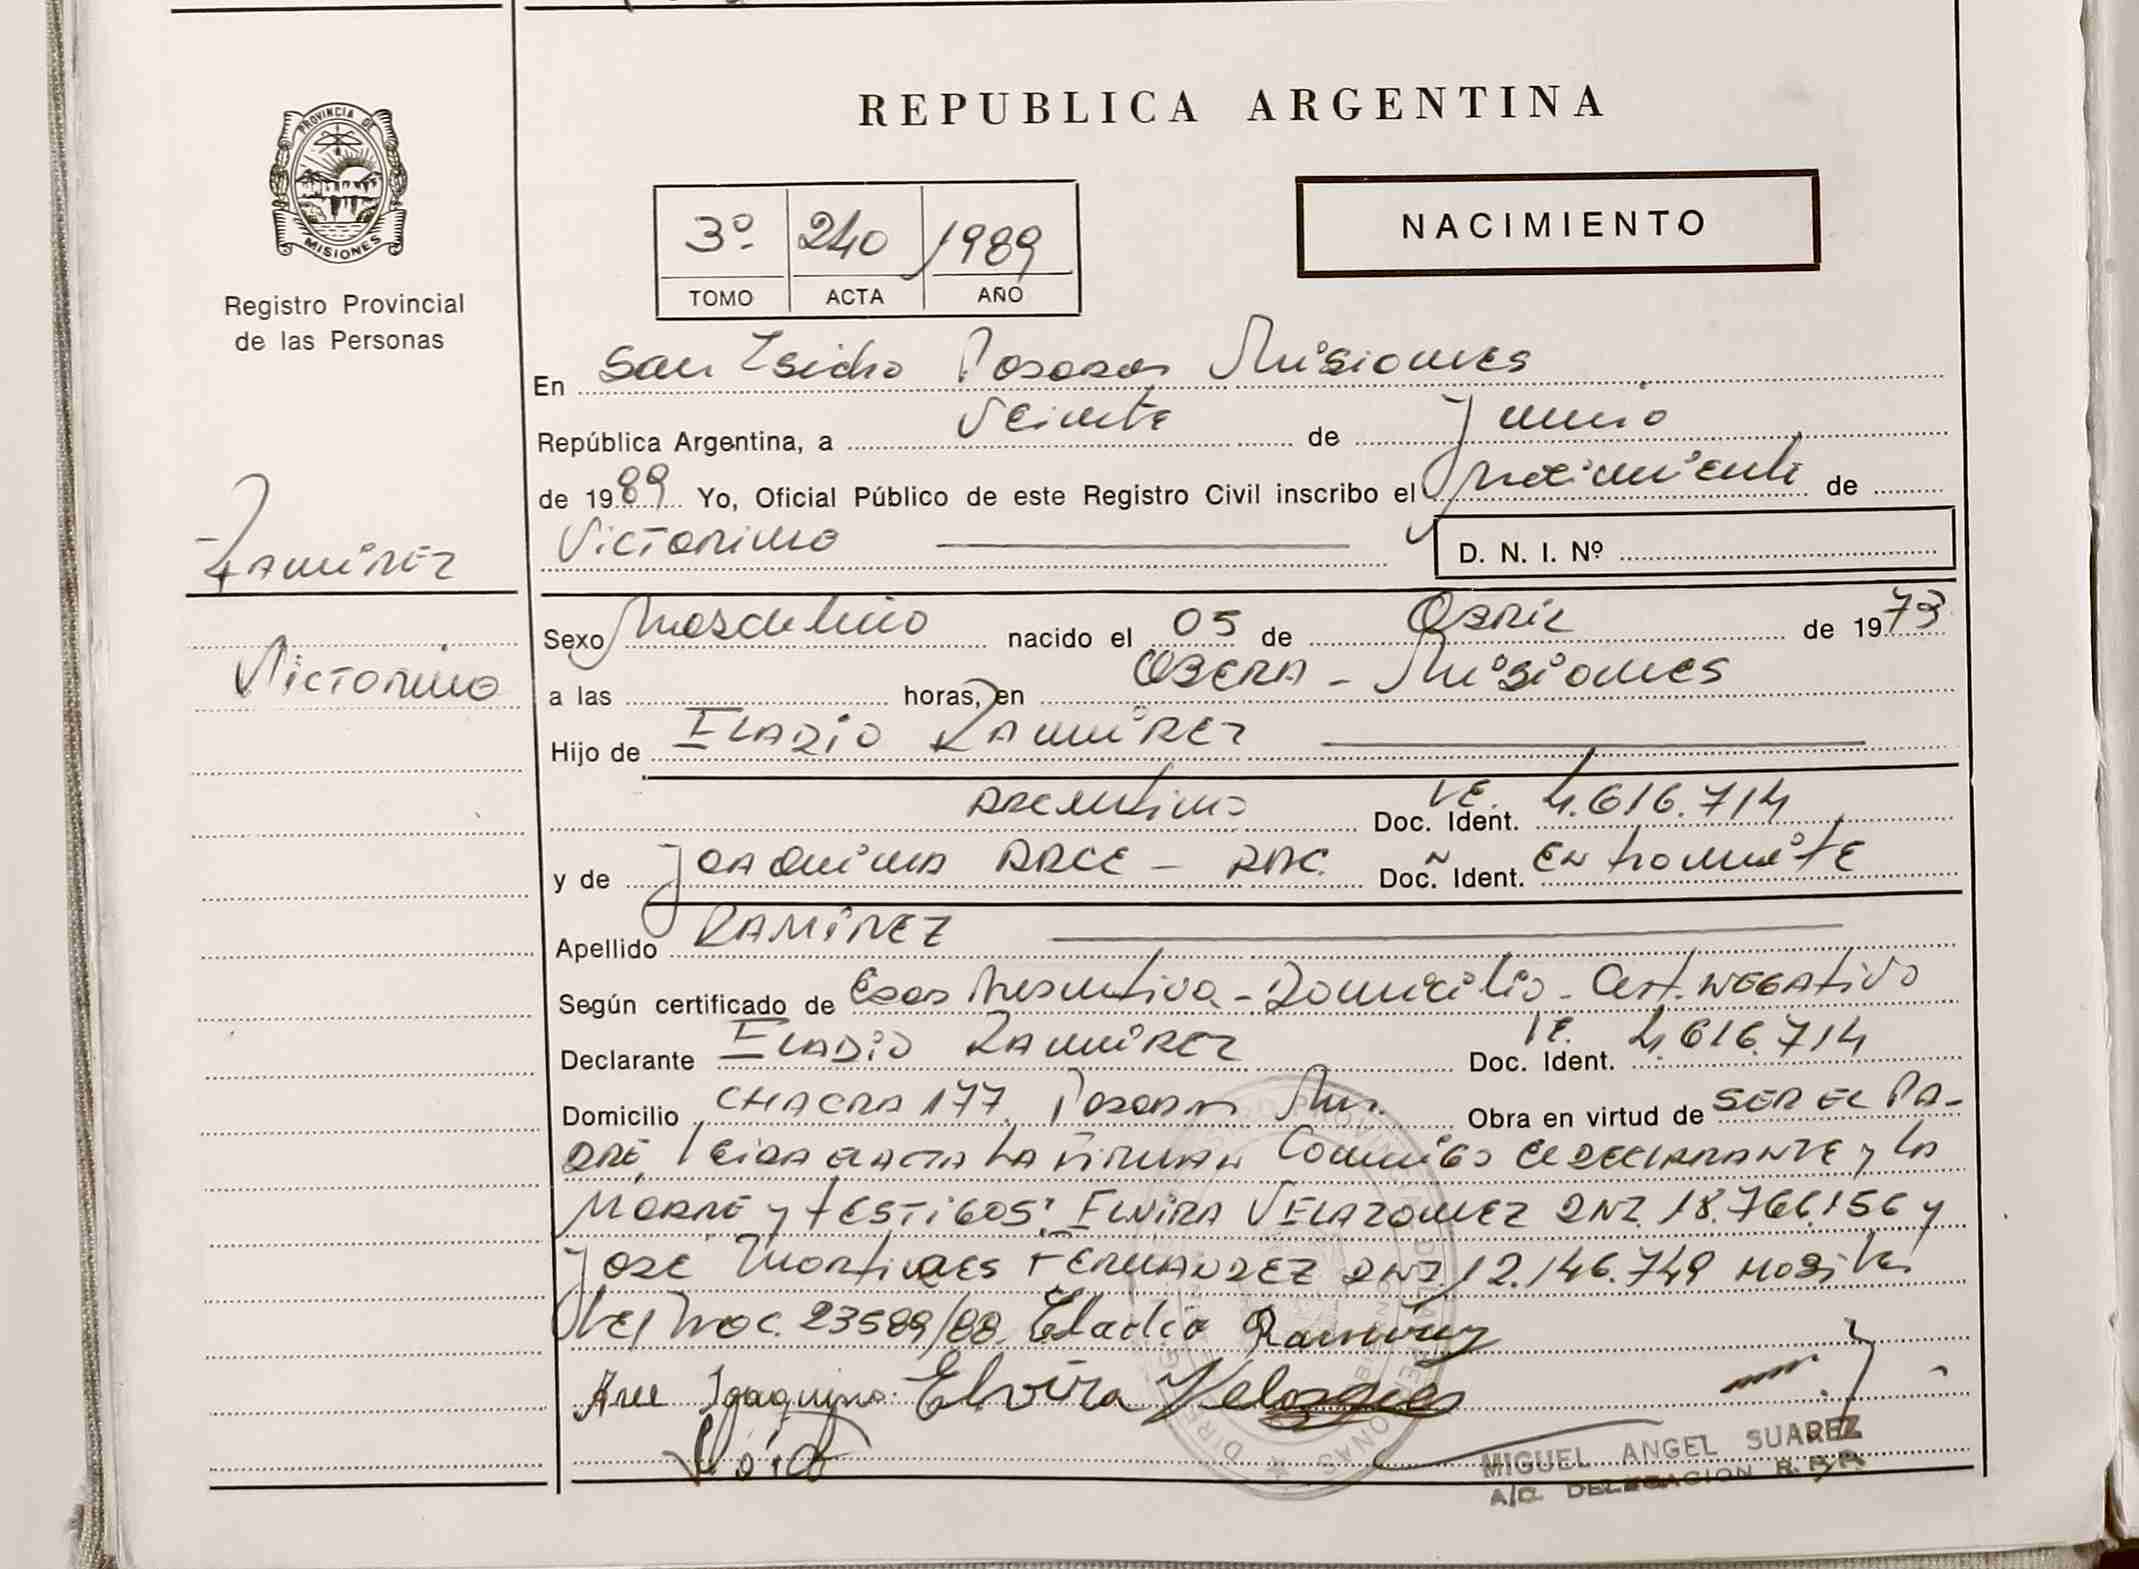 REPUBLICA ARGENTINA
PROVINCIA DE
MISIONES
Registro Provincial
de las Personas
3º 240 1989
TOMO ACTA AÑO
NACIMIENTO
En San Isidro Posadas Misiones
República Argentina, a Veinte de Junio
de 1989 Yo, Oficial Público de este Registro Civil inscribo el Nacimiento de
Victorino
D. N. I. Nº
Ramírez
Victorino
Sexo Masculino nacido el 05 de Abril de 1973
a las horas, en Obera - Misiones
Hijo de Eladio Ramírez
Argentino Doc. Ident. 4.616.714
y de Joaquina Arce - Arg. Doc. Ident. En tramite
Apellido Ramírez
Según certificado de Edad Domicilio - Cert. Negativo
Declarante Eladio Ramírez Doc. Ident. 4.616.714
Domicilio Chacra 177 Posadas Mnes. Obra en virtud de ser el pa-
dre, leida el acta la firman conmigo el declarante y la
madre y testigos: Elvira Velazquez DNI. 18.766.156 y
Jose Martires Fernandez DNI. 12.146.749
23589/88. Eladio Ramirez
Arce Joaquina Elvira Velasques
MIGUEL ANGEL SUAREZ
A/C. DELEGACION R.P.P.